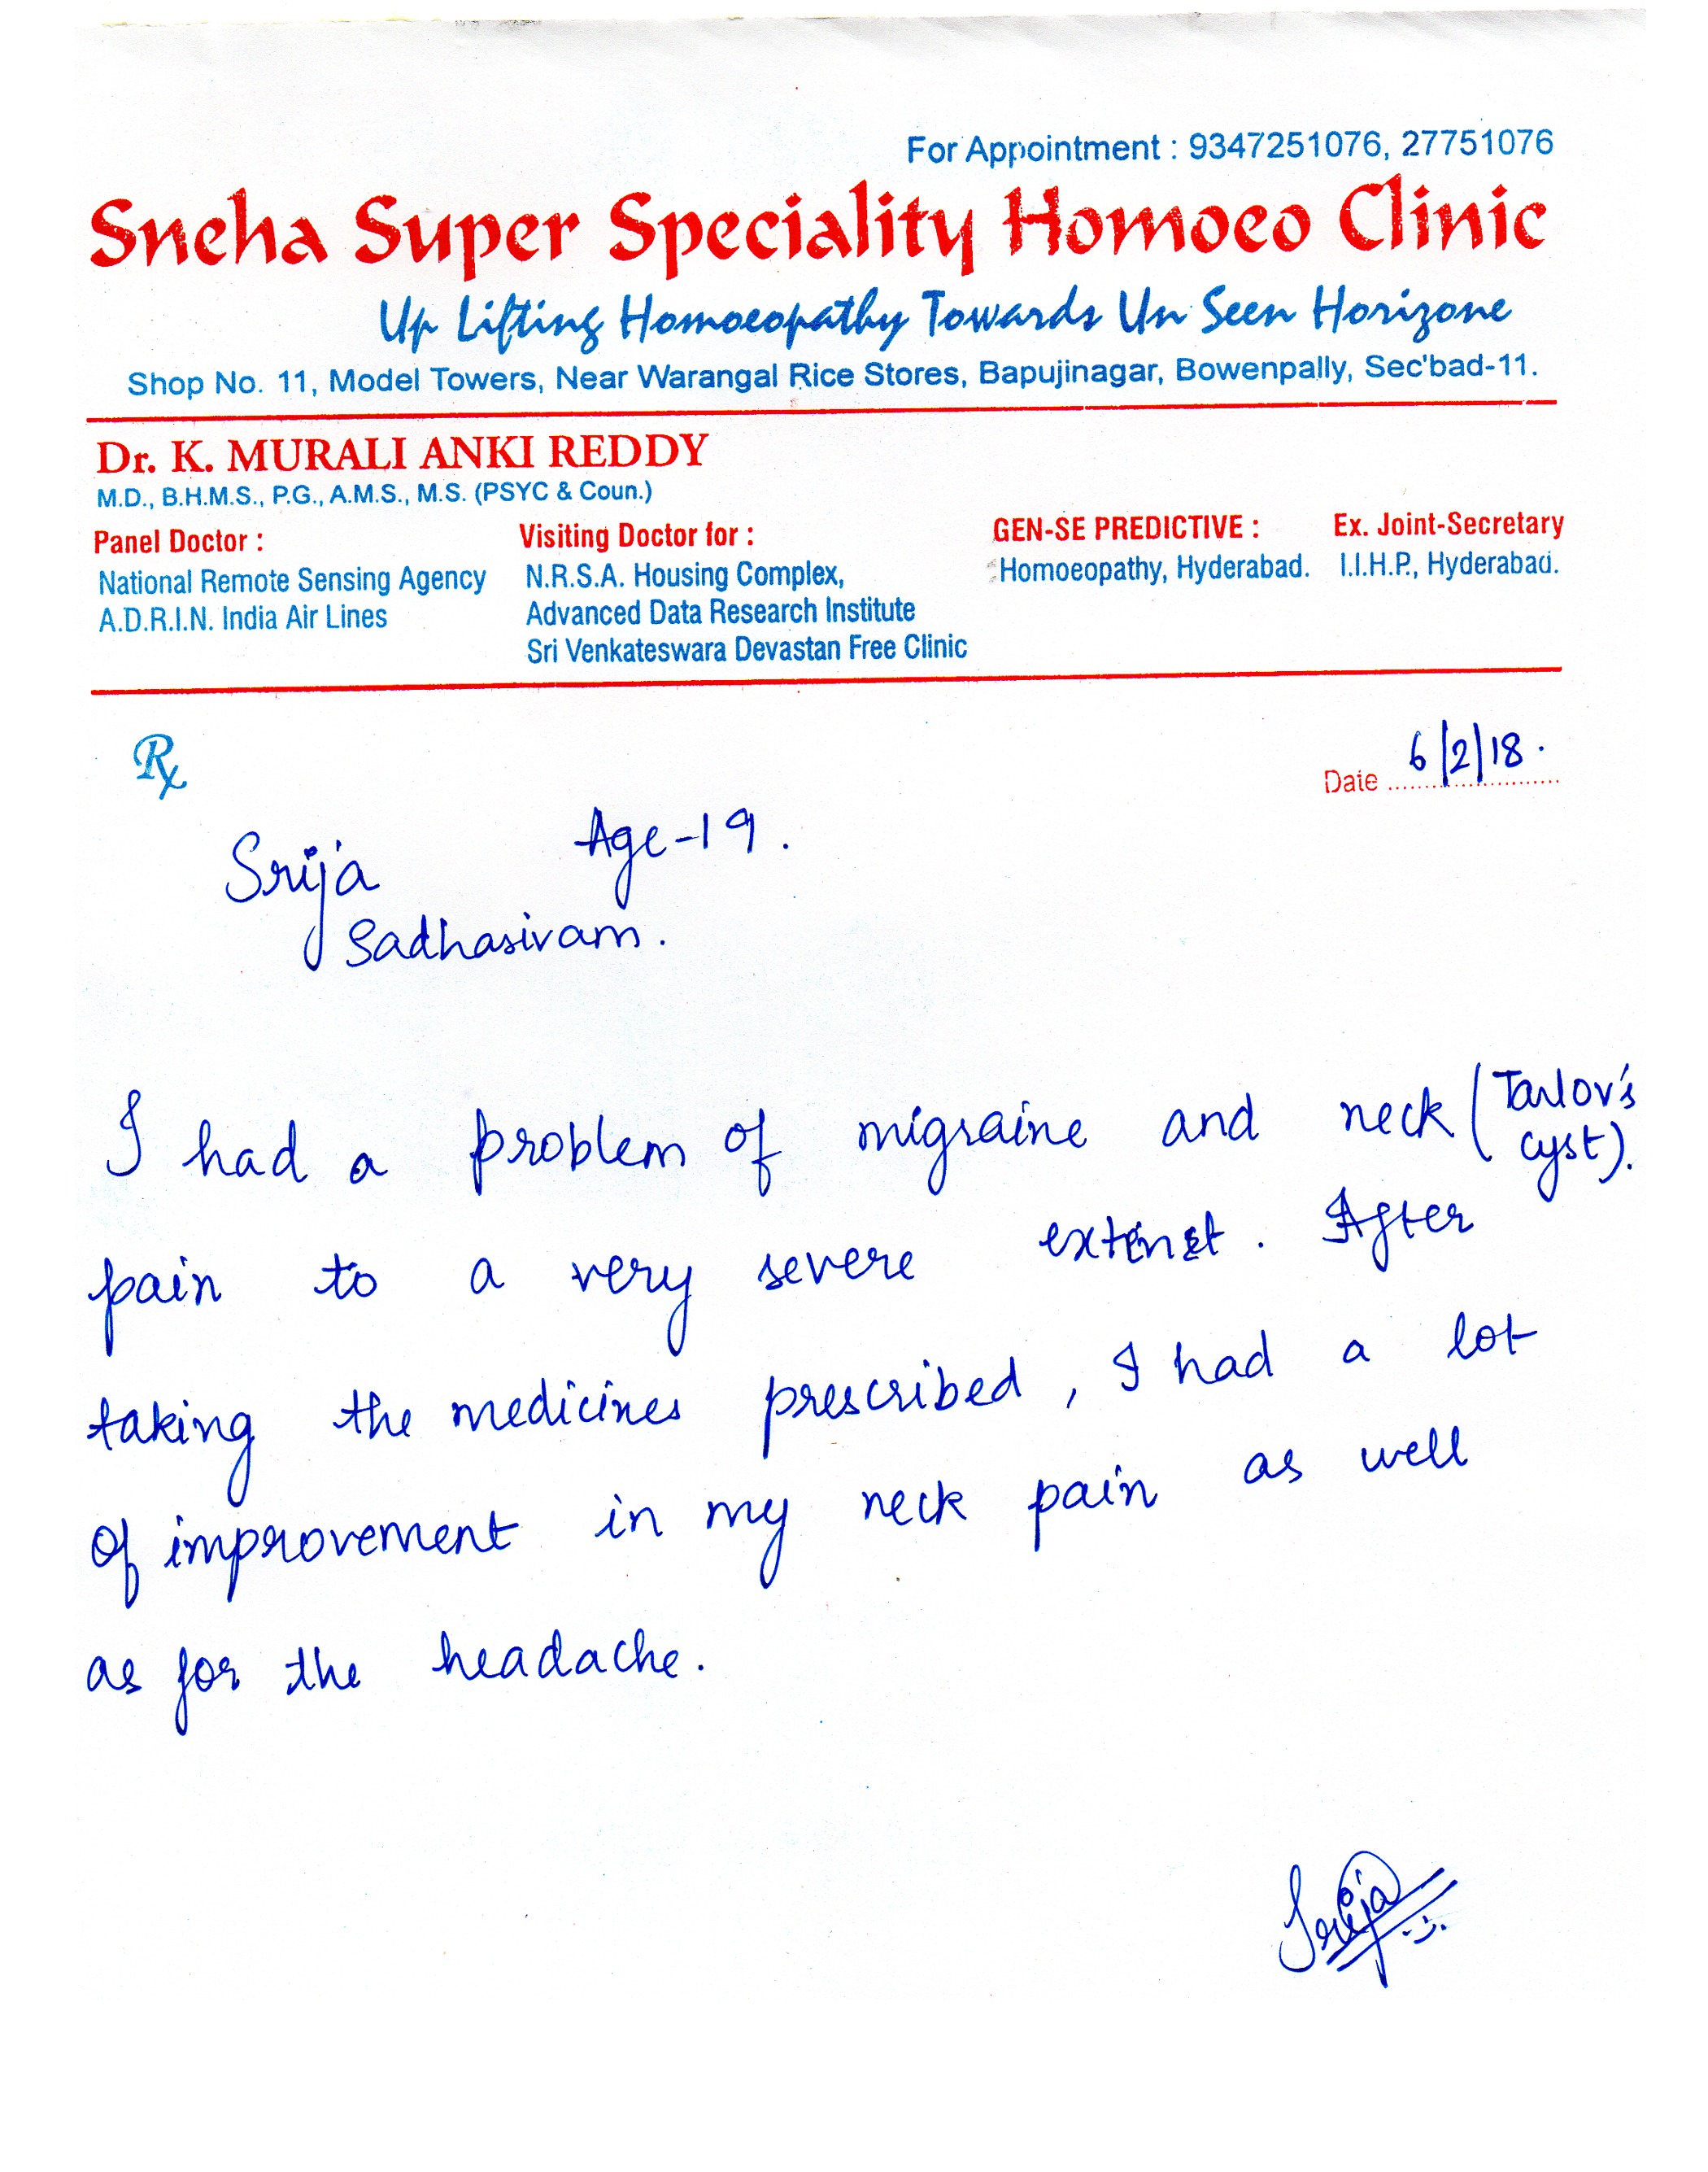 For Appointment : 9347251076, 27751076
Sneha Super Speciality Homoeo Clinic
Up Lifting Homoeopathy Towards Un Seen Horizone
Shop No. 11, Model Towers, Near Warangal Rice Stores, Bapujinagar, Bowenpally, Sec'bad-11.
Dr. K. MURALI ANKI REDDY
M.D., B.H.M.S., P.G., A.M.S., M.S. (PSYC & Coun.)
Panel Doctor :
National Remote Sensing Agency
A.D.R.I.N. India Air Lines
Visiting Doctor for :
N.R.S.A. Housing Complex,
Advanced Data Research Institute
Sri Venkateswara Devastan Free Clinic
GEN-SE PREDICTIVE :
Homoeopathy, Hyderabad.
Ex. Joint-Secretary
I.I.H.P., Hyderabad.
Rx
Date 6/2/18.
Srija Age-19.
Sadhasivam.
I had a problem of migraine and neck (Tarlov's
cyst).
pain to a very severe extent. After
taking the medicines prescribed, I had a lot
of improvement in my neck pain as well
as for the headache.
Srija